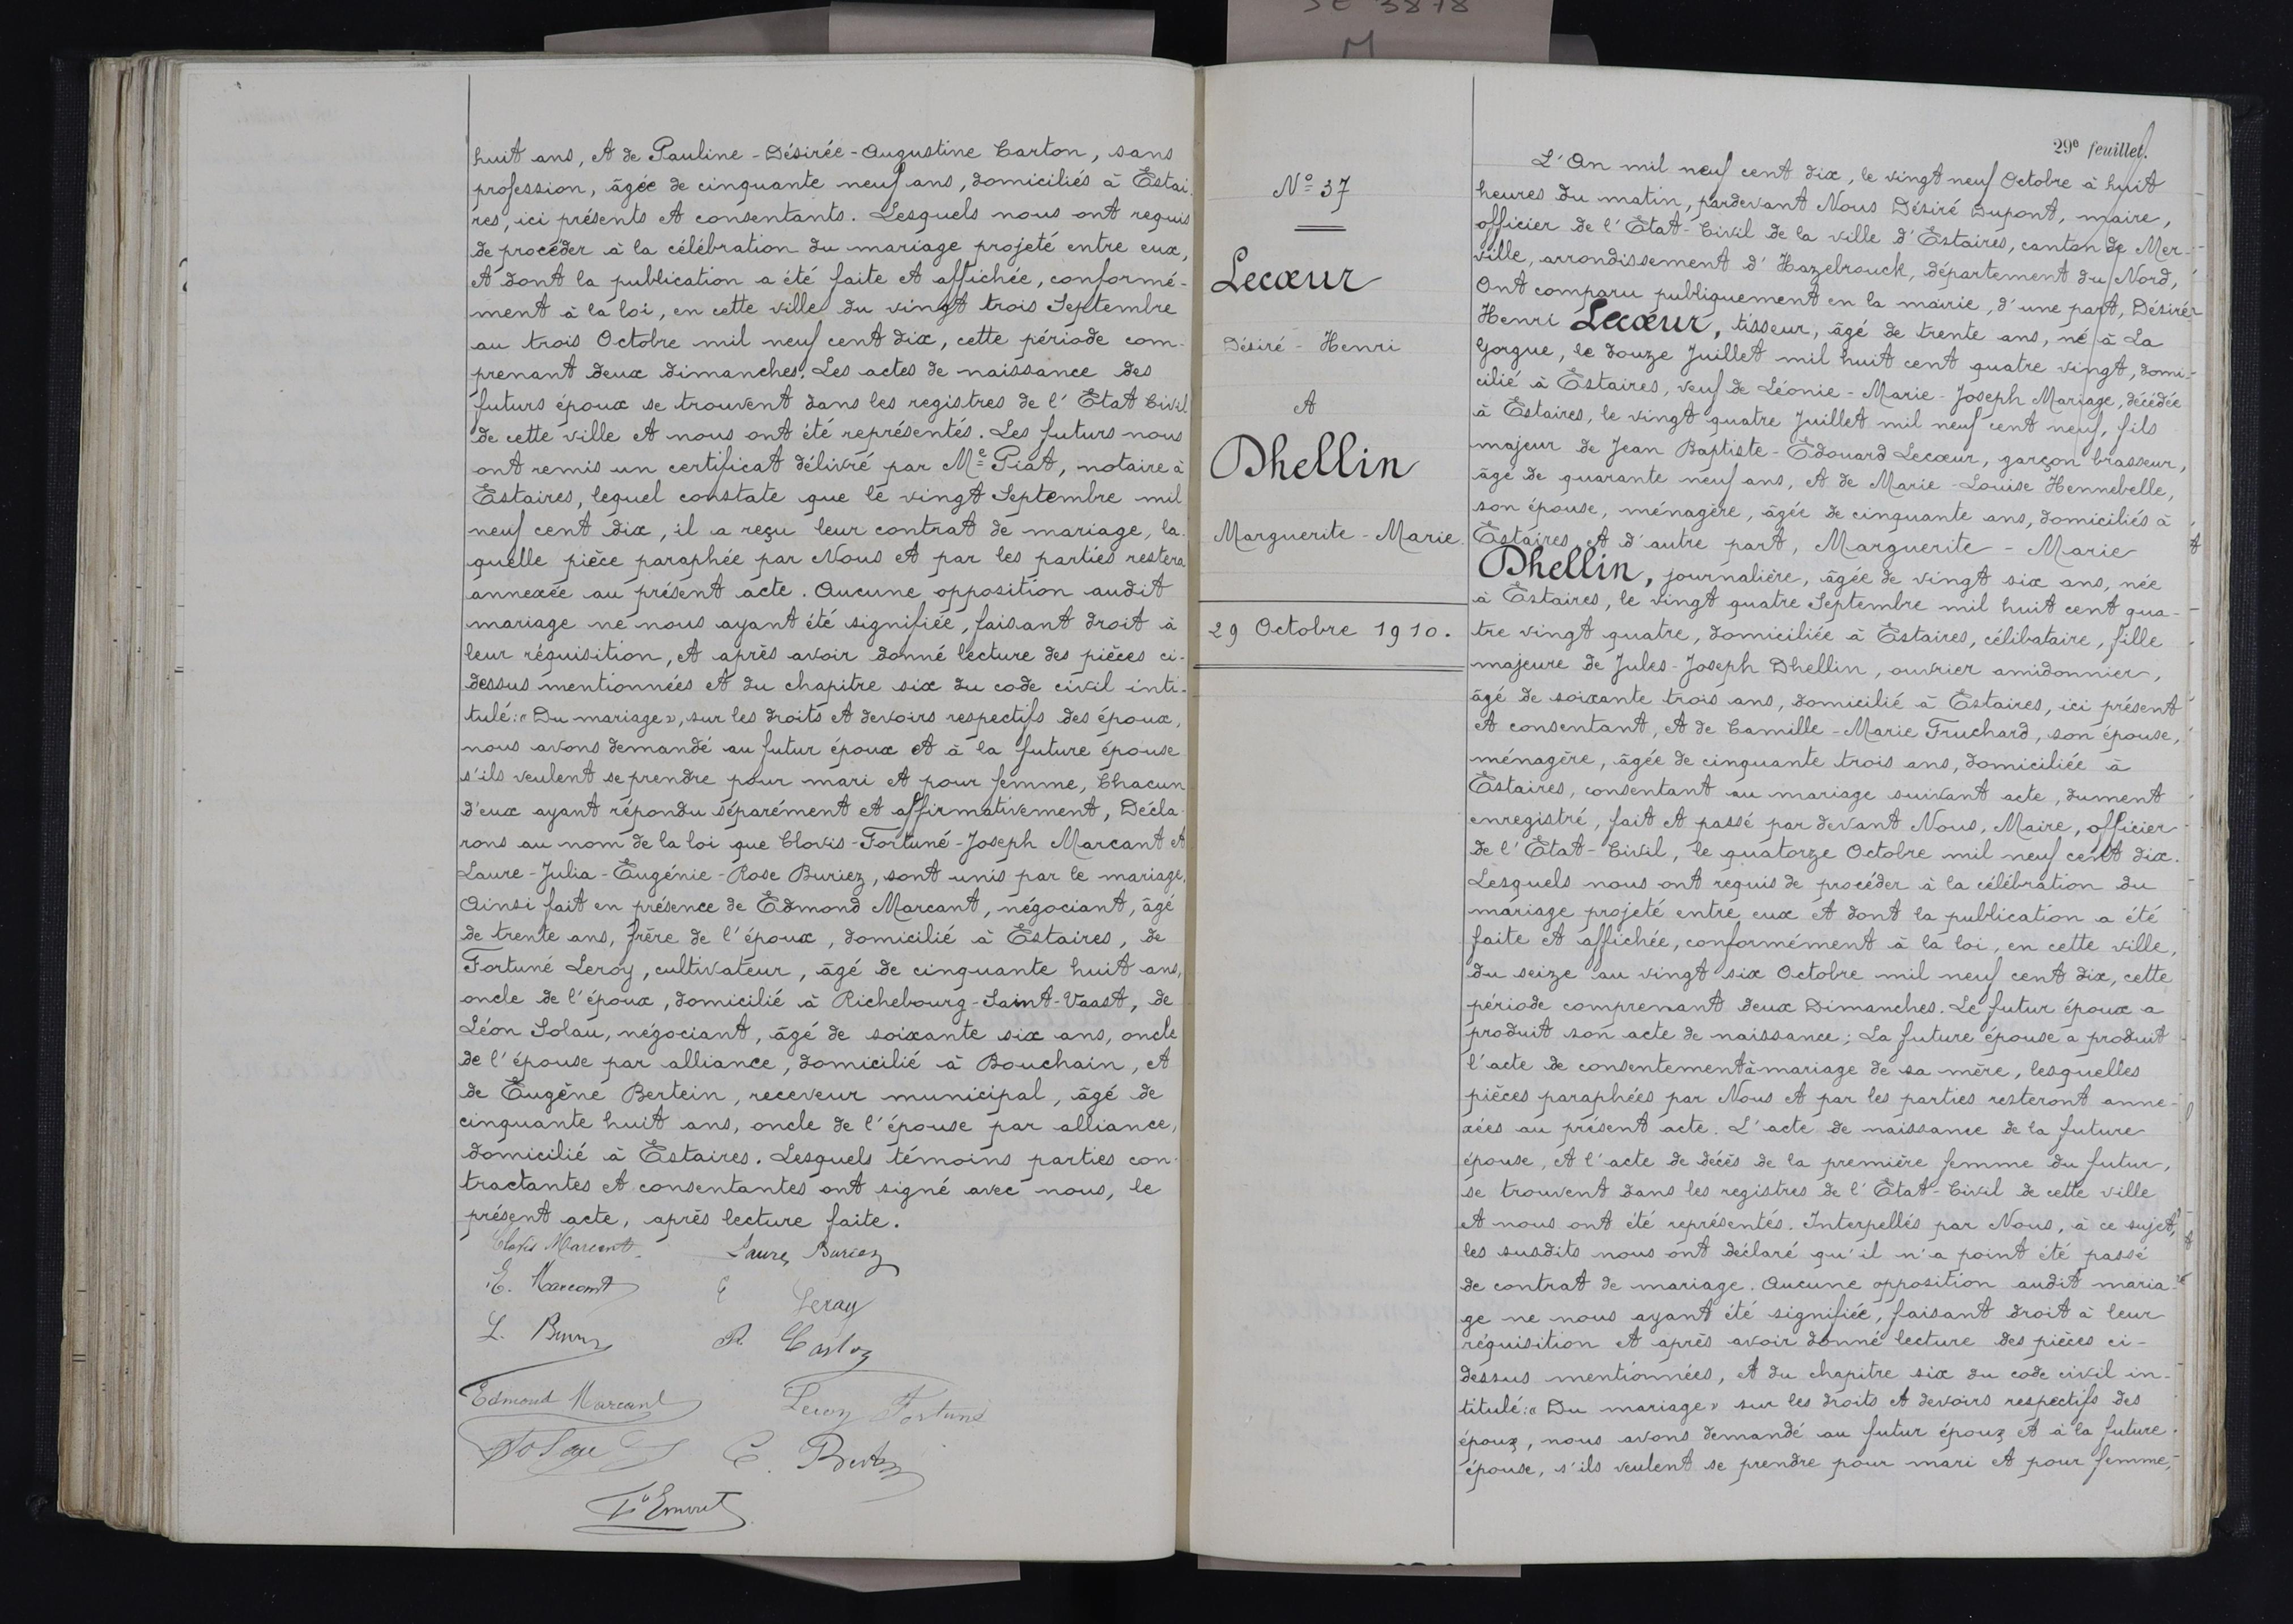 huit ans, et de Pauline-Désirée-Augustine Carton, sans
profession, âgée de cinquante neuf ans, domiciliés à Estai-
res, ici présents et consentants. Lesquels nous ont requis
de procéder à la célébration du mariage projeté entre eux,
et dont la publication a été faite et affichée, conformé-
ment à la loi, en cette ville du vingt trois Septembre
au trois Octobre mil neuf cent dix, cette période com-
prenant deux dimanches. Les actes de naissance des
futurs époux se trouvent dans les registres de l'Etat Civil
de cette ville et nous ont été représentés. Les futurs nous
ont remis un certificat délivré par Me Piat, notaire à
Estaires, lequel constate que le vingt Septembre mil
neuf cent dix, il a reçu leur contrat de mariage, la-
quelle pièce paraphée par Nous et par les parties restera
annexée au présent acte. Aucune opposition audit
mariage ne nous ayant été signifiée, faisant droit à
leur réquisition, et après avoir donné lecture des pièces ci-
dessus mentionnées et du chapitre six du code civil inti-
tulé: « Du mariage », sur les droits et devoirs respectifs des époux,
nous avons demandé au futur époux et à la future épouse
s'ils veulent se prendre pour mari et pour femme, Chacun
d'eux ayant répondu séparément et affirmativement, Décla-
rons au nom de la loi que Clovis-Fortuné-Joseph Marcant et
Laure-Julia-Eugénie-Rose Buriez, sont unis par le mariage.
Ainsi fait en présence de Edmond Marcant, négociant, âgé
de trente ans, frère de l'époux, domicilié à Estaires, de
Fortuné Leroy, cultivateur, âgé de cinquante huit ans,
oncle de l'époux, domicilié à Richebourg-Saint-Vaast, de
Léon Solau, négociant, âgé de soixante six ans, oncle
de l'épouse par alliance, domicilié à Bouchain, et
de Eugène Bertein, receveur municipal, âgé de
cinquante huit ans, oncle de l'épouse par alliance,
domicilié à Estaires. Lesquels témoins parties con-
tractantes et consentantes ont signé avec nous, le
présent acte, après lecture faite.
Clovis Marcant Laure Buriez
E. Marcant Leroy
L. P.
Edmond Marcant Leroy Fortuné
Solau E.
SE 3878
M
29e feuillet.
No 37
Lecœur
Désiré-Henri
et
Dhellin
Marguerite-Marie
29 Octobre 1910.
L'An mil neuf cent dix, le vingt neuf Octobre à huit
heures du matin, pardevant Nous Désiré Dupont, maire,
officier de l'Etat-Civil de la ville d'Estaires, canton de Mer-
ville, arrondissement d'Hazebrouck, département du Nord,
Ont comparu publiquement en la mairie, d'une part, Désiré-
Henri Lecœur, tisseur, âgé de trente ans, né à La
Gorgue, le douze Juillet mil huit cent quatre vingt, domi-
cilié à Estaires, veuf de Léonie-Marie-Joseph Mariage, décédée
à Estaires, le vingt quatre Juillet mil neuf cent neuf, fils
majeur de Jean Baptiste-Edouard Lecœur, garçon brasseur,
âgé de quarante neuf ans, et de Marie-Louise Hennebelle,
son épouse, ménagère, âgée de cinquante ans, domiciliés à
Estaires, et d'autre part, Marguerite-Marie
Dhellin, journalière, âgée de vingt six ans, née
à Estaires, le vingt quatre Septembre mil huit cent qua-
tre vingt quatre, domiciliée à Estaires, célibataire, fille
majeure de Jules-Joseph Dhellin, ouvrier amidonnier,
âgé de soixante trois ans, domicilié à Estaires, ici présent
et consentant, et de Camille-Marie Fruchard, son épouse,
ménagère, âgée de cinquante trois ans, domiciliée à
Estaires, consentant au mariage suivant acte, dument
enregistré, fait et passé par devant Nous, Maire, officier
de l'Etat-Civil, le quatorze Octobre mil neuf cent dix.
Lesquels nous ont requis de procéder à la célébration du
mariage projeté entre eux et dont la publication a été
faite et affichée, conformément à la loi, en cette ville,
du seize au vingt six Octobre mil neuf cent dix, cette
période comprenant deux Dimanches. Le futur époux a
produit son acte de naissance; La future épouse a produit
l'acte de consentement à mariage de sa mère, lesquelles
pièces paraphées par Nous et par les parties resteront anne-
xées au présent acte. L'acte de naissance de la future
épouse, et l'acte de décès de la première femme du futur,
se trouvent dans les registres de l'Etat-Civil de cette ville
et nous ont été représentés. Interpellés par Nous, à ce sujet,
les susdits nous ont déclaré qu'il n'a point été passé
de contrat de mariage. Aucune opposition audit maria-
ge ne nous ayant été signifiée, faisant droit à leur
réquisition et après avoir donné lecture des pièces ci-
dessus mentionnées, et du chapitre six du code civil in-
titulé: « Du mariage » sur les droits et devoirs respectifs des
époux, nous avons demandé au futur époux et à la future
épouse, s'ils veulent se prendre pour mari et pour femme,